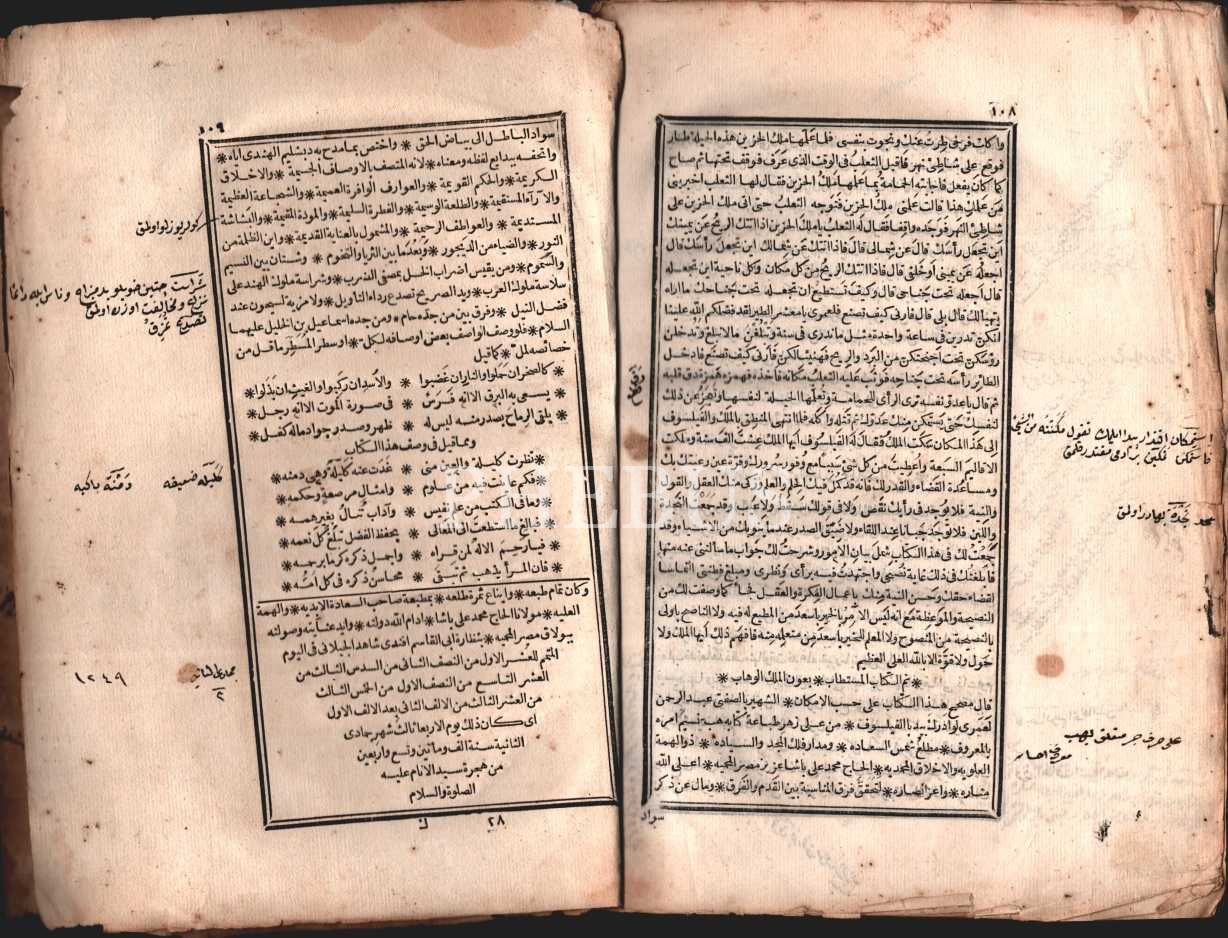 ١٠٨
وا كات فريني وطرت عنك ونجوت بنفسى فلما علمها ملك الحزين هذه الحيلة طار
فوقع على شاطئ نهر فاقبل الثعلب فى الوقت الذى عرف فوقف تحتها ثم صاح
كما كان يفعل فاجابته الحمامة بما علمها ملك الحزين فقال لها الثعلب اخبرينى
من علمك هذا قالت علمنى ملك الحزين فتوجه الثعلب حتى اتى ملك الحزين على
شاطئ النهر فوجده واقفا فقال له الثعلب يا ملك الحزين اذا اتتك الريح عن يمينك
اين تجعل رأسك قال عن شمالى قال فاذا اتتك عن شمالك اين تجعل رأسك قال
اجعله عن يمينى او خلفى قال فاذا اتتك الريح من كل مكان وكل ناحية اين تجعله
قال اجعله تحت جناحى قال وكيف تستطيع ان تجعله تحت جناحك ما اراه
يتهيأ لك قال بلى قال فأرنى كيف تصنع فلعمرى يا معشر الطير لقد فضلكم الله علينا
انكن تدرين فى ساعة واحدة مثل ما ندرى فى سنة وتبلغن مالا نبلغ وتدخلن
رؤسكن تحت اجنحتكن من البرد والريح فهنيئا لكن فأرنى كيف تصنع فادخل
الطائر رأسه تحت جناحه فوثب عليه الثعلب مكانه فاخذه فهمزه همزة دق قلبه
ثم قال يا عدو نفسه ترى الرأى للحمامة وتعلمها الحيلة لنفسها وتعجز عن ذلك
لنفسك حتى يستمكن منك عدوك ثم قتله واكله فلما انتهى المنطق بالملك والفيلسوف
الى هذا المكان سكت الملك فقال له الفيلسوف ايها الملك عشت الف سنة وملكت
الاقاليم السبعة واعطيت من كل شئ سببا مع وفور سرورك وقرة عين رعيتك بك
ومساعدة القضاء والقدر لك فانه قد كمل فيك الحلم والعلم وزكى منك العقل والقول
والنية فلا يوجد فى رأيك نقص ولا فى قولك سقط ولا عيب وقد جمعت النجدة
واللين فلا توجد جبانا عند اللقاء ولا ضيق الصدر عند ما ينوبك من الاشياء وقد
جمعت لك فى هذا الكتاب شمل بيان الامور وشرحت لك جواب ما سالتنى عنه منها
فابلغتك فى ذلك غاية نصحى واجتهدت فيه برأيى ونظرى ومبلغ فطنتى التماسا
لقضاء حقك وحسن النية منك باعمال الفكرة والعقل فجاء كما وصفت لك من
النصيحة والموعظة مع انه ليس الآمر بالخير باسعد من المطيع له فيه ولا الناصح باولى
بالنصيحة من المنصوح ولا المعلم للخير باسعد من متعلمه منه فافهم ذلك ايها الملك ولا
حول ولا قوة الا بالله العلى العظيم
* تم الكتاب المستطاب * بعون الملك الوهاب *
قال مصحح هذا الكتاب على حسب الامكان * الشهير بالصفتى عبد الرحمن
لعمرى لو ادرك بيدبا الفيلسوف * من على زهر طباعة كتابه هبه نسيم امره
بالمعروف * مطلع شمس السعاده * ومدار فلك المجد والسياده * ذو الهمة
العلويه والاخلاق المحمديه * الحاج محمد على باشا عزيز مصر المحميه * اعلى الله
مناره * واعز انصاره * لتحقق فرق المناسبة بين القدم والفرق * ومال عن ذكر
سواد
١٠٩
سواد الباطل الى بياض الحق * واختص بما مدح به دبشليم الهندى اياه *
واتحفه ببدايع لفظه ومعناه * لانه المتصف بالاوصاف الجسيمة * والاخلاق
الكريمة * والحكم القويمة * والعوارف الوافرة العميمة * والشجاعة العظيمة
والآراء المستقيمة * والطلعة الوسيمة * والفطرة السليمة * والمودة المقيمة * والبشاشة
المستديمة * والعواطف الرحيمة * والمشمول بالعناية القديمة * واين الظلمة من
النور * والضياء من الديجور * وبعد ما بين الثريا والتخوم * وشتان بين النسيم
والسموم * ومن يقيس اضراب الخل بمصفى الضرب * وشراسة ملوك الهند على
سلاسة ملوك العرب * ويد الصريح تصدع رداء التاويل * ولا مزية لسيحون عند
فضل النيل * وفرق بين من جده حام * ومن جده اسماعيل بن الخليل عليهما
السلام * فلو وصف الواصف بعض اوصافه لكل * او سطر المسطر ما قل من
خصائصه لمل * كما قيل
* كالصخر ان حملوا والنار ان غضبوا * والاسد ان ركبوا والغيث ان بذلوا *
* يسمى به البرق الا انه فرس * فى صورة الموت الا انه رجل *
* يلقى الرماح بصدر منه ليس له * ظهر وصدر جواد ماله كفل *
ومما قيل فى وصف هذا الكتاب
* نظرت كليلة والعين منى * غدت عنه كليلة وهى دمنه *
* فكم عاينت فيه من علوم * وامثال مرصعة وحكمه *
* وما فى الكتب من علم نفيس * وآداب تنال بغير همه *
* فبالغ ما استطعت الى المعالى * بحفظ الفضل تبلغ كل نعمه *
* فيا رحم الاله لمن قراه * واجمل ذكره كرما برحمه *
* فان المرأ يذهب ثم تبقى * محاسن ذكره فى كل امه *
وكان تمام طبعه * وايناع ثمر طلعه * بمطبعة صاحب السعادة الابديه * والهمة
العليه * مولانا الحاج محمد على باشا * ادام الله دولته * وايد عنايته وصولته
ببولاق مصر المحميه * بنظارة ابى القاسم افندى شاهد الجيلانى فى اليوم
المتمم للعشر الاول من النصف الثانى من السدس الثالث من
العشر التاسع من النصف الاول من الخمس الثالث
من العشر الثالث من الالف الثانى بعد الالف الاول
اى كان ذلك يوم الاربعا ثالث شهر جمادى
الثانية سنة الف ومائتين وتسع واربعين
من هجرة سيد الانام عليه
الصلوة والسلام
٢٨ ك
كولريوزلو اولمق
كليله ضعيفه
١٢٤٩